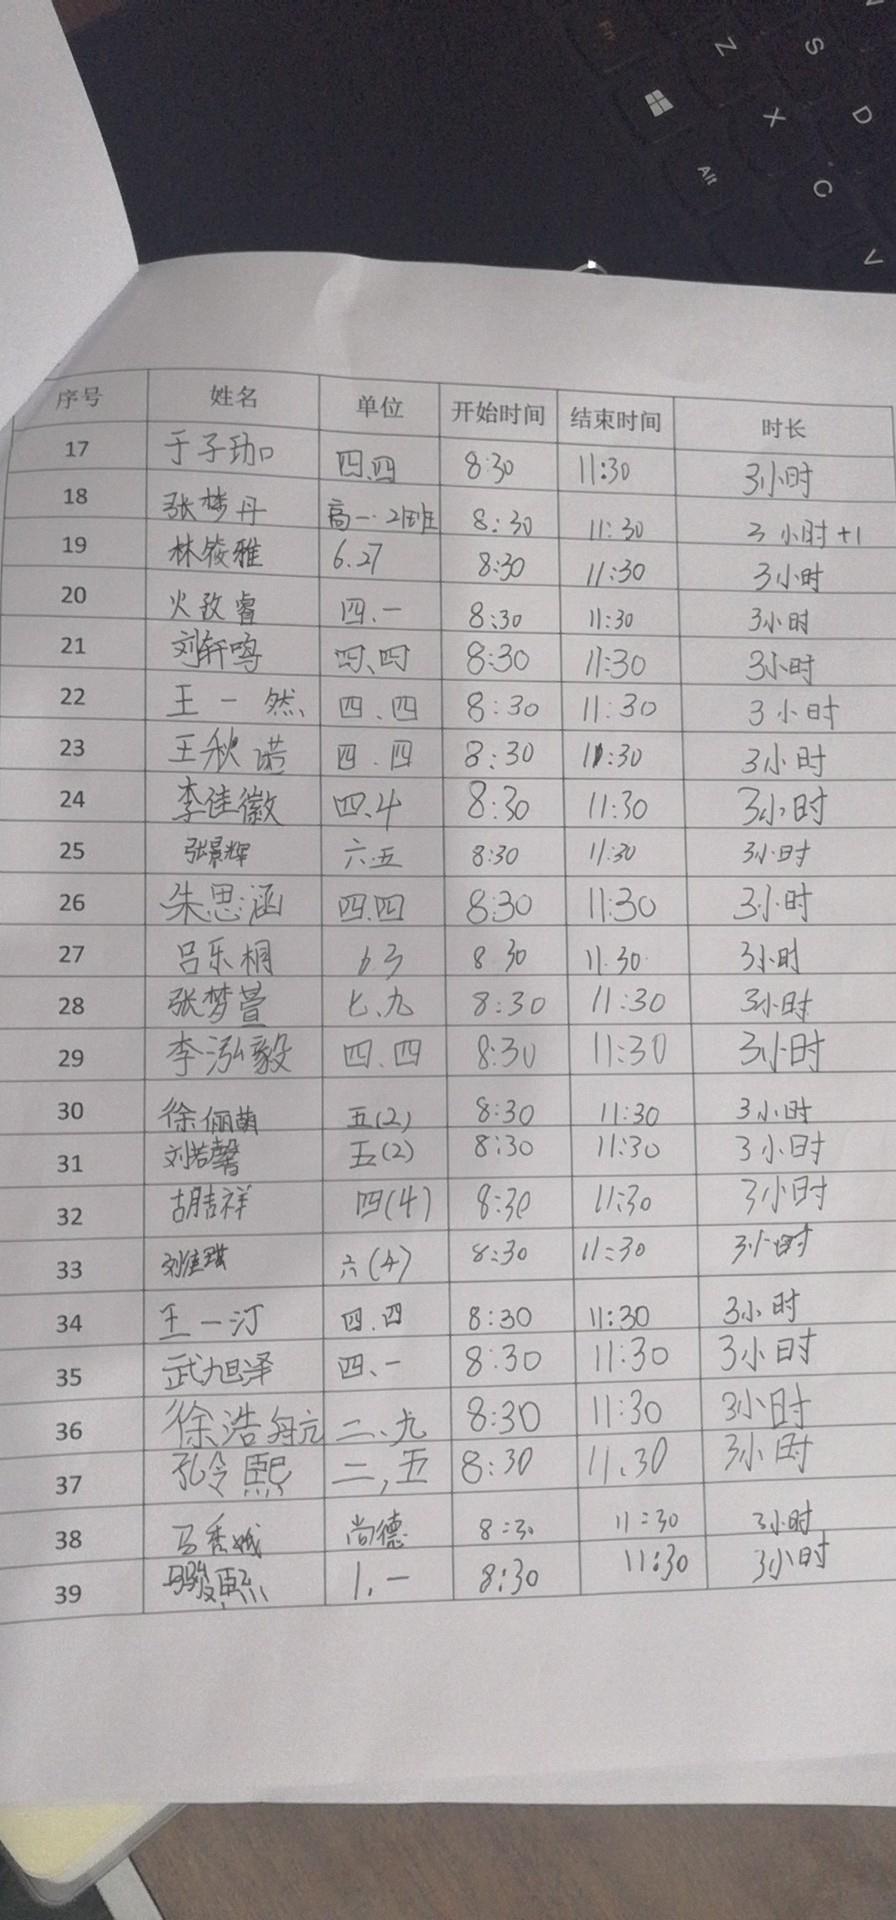 Fn Z S
X D
Alt C
V
序号 姓名 单位 开始时间 结束时间 时长
17 于子珈 四.四 8:30 11:30 3小时
18 张梦丹 高一.2班 8:30 11:30 3小时+1
19 林筱雅 6.27 8:30 11:30 3小时
20 火孜睿 四.一 8:30 11:30 3小时
21 刘轩鸣 四、四 8:30 11:30 3小时
22 王一然 四.四 8:30 11:30 3小时
23 王秋诺 四.四 8:30 11:30 3小时
24 李佳徽 四.4 8:30 11:30 3小时
25 张景辉 六.五 8:30 11:30 3小时
26 朱思涵 四.四 8:30 11:30 3小时
27 吕乐桐 63 8 30 11.30 3小时
28 张梦萱 七、九 8:30 11:30 3小时
29 李泓毅 四.四 8:30 11:30 3小时
30 徐俪萌 五(2) 8:30 11:30 3小时
31 刘若馨 五(2) 8:30 11:30 3小时
32 胡吉祥 四(4) 8:30 11:30 3小时
33 刘佳琪 六(4) 8:30 11:30 3小时
34 王一汀 四.四 8:30 11:30 3小时
35 武旭泽 四、一 8:30 11:30 3小时
36 徐浩航 二、九 8:30 11:30 3小时
37 孔令熙 二,五 8:30 11.30 3小时
38 马秀娥 尚德 8:30 11:30 3小时
39 1.一 8:30 11:30 3小时